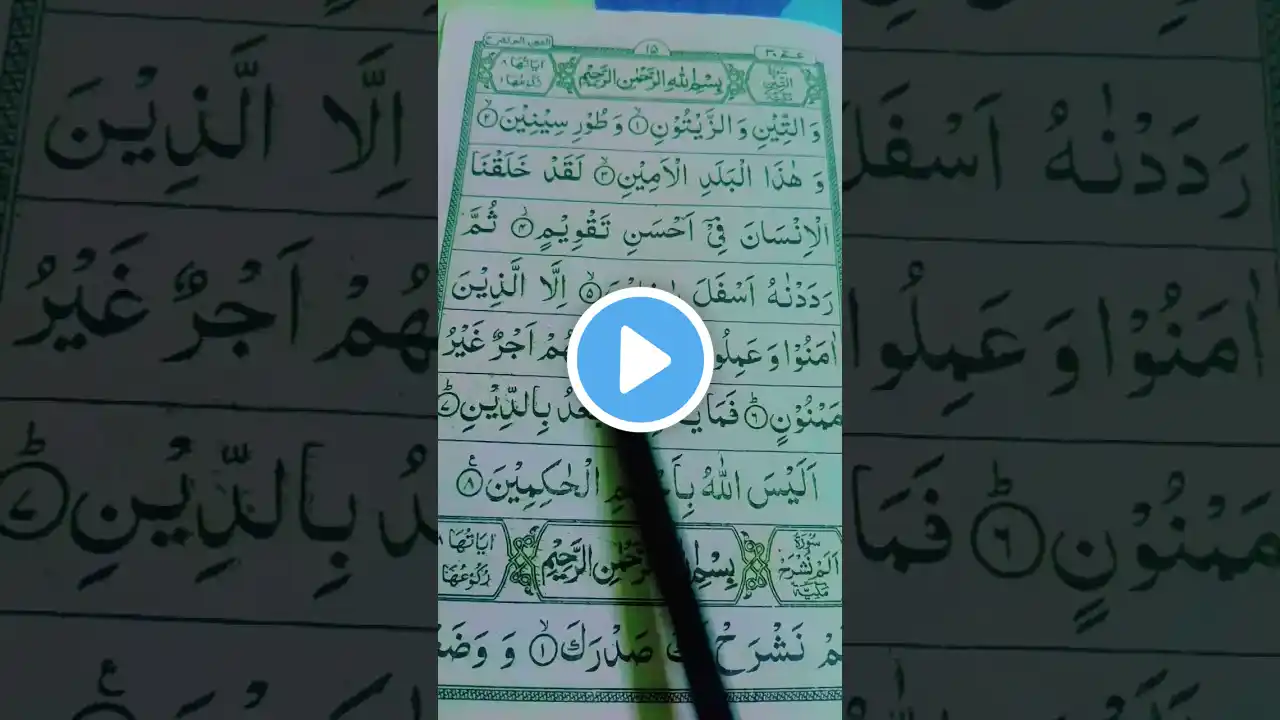 عـم ٣٠
١٥
سورة التين
بِسْمِ اللّٰهِ الرَّحْمٰنِ الرَّحِيْمِ
اٰيَاتُهَا ٨
رُكُوْعُهَا ١
وَ التِّيْنِ وَ الزَّيْتُوْنِ ۙ﴿۱﴾ وَ طُوْرِ سِيْنِيْنَ ۙ﴿۲﴾
وَ هٰذَا الْبَلَدِ الْاَمِيْنِ ۙ﴿۳﴾ لَقَدْ خَلَقْنَا
الْاِنْسَانَ فِيْۤ اَحْسَنِ تَقْوِيْمٍ ۫﴿۴﴾ ثُمَّ
رَدَدْنٰهُ اَسْفَلَ ۙ﴿۵﴾ اِلَّا الَّذِيْنَ
اٰمَنُوْا وَ عَمِلُوا اَجْرٌ غَيْرُ
مَمْنُوْنٍ ؕ﴿۶﴾ فَمَا بِالدِّيْنِ ؕ﴿۷﴾
اَلَيْسَ اللّٰهُ الْحٰكِمِيْنَ ﴿۸﴾
سُوْرَةُ اَلَمْ نَشْرَحْ مَكِّيَّةٌ
بِسْمِ الرَّحِيْمِ
اٰيَاتُهَا ٨
رُكُوْعُهَا
نَشْرَحْ صَدْرَكَ ۙ﴿۱﴾ وَ